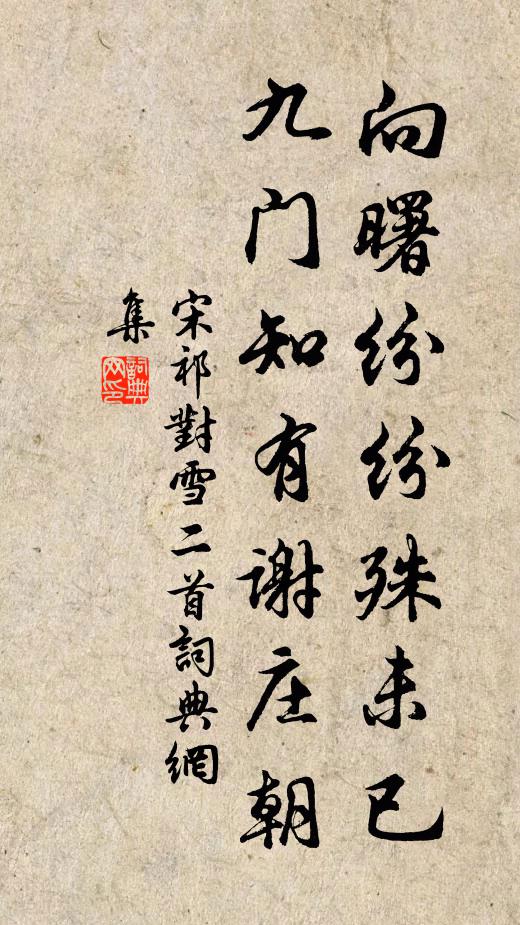 向曙纷纷殊未已
九门知有谢庄朝
宋祁對雪二首詞典網
集
詞典
网印